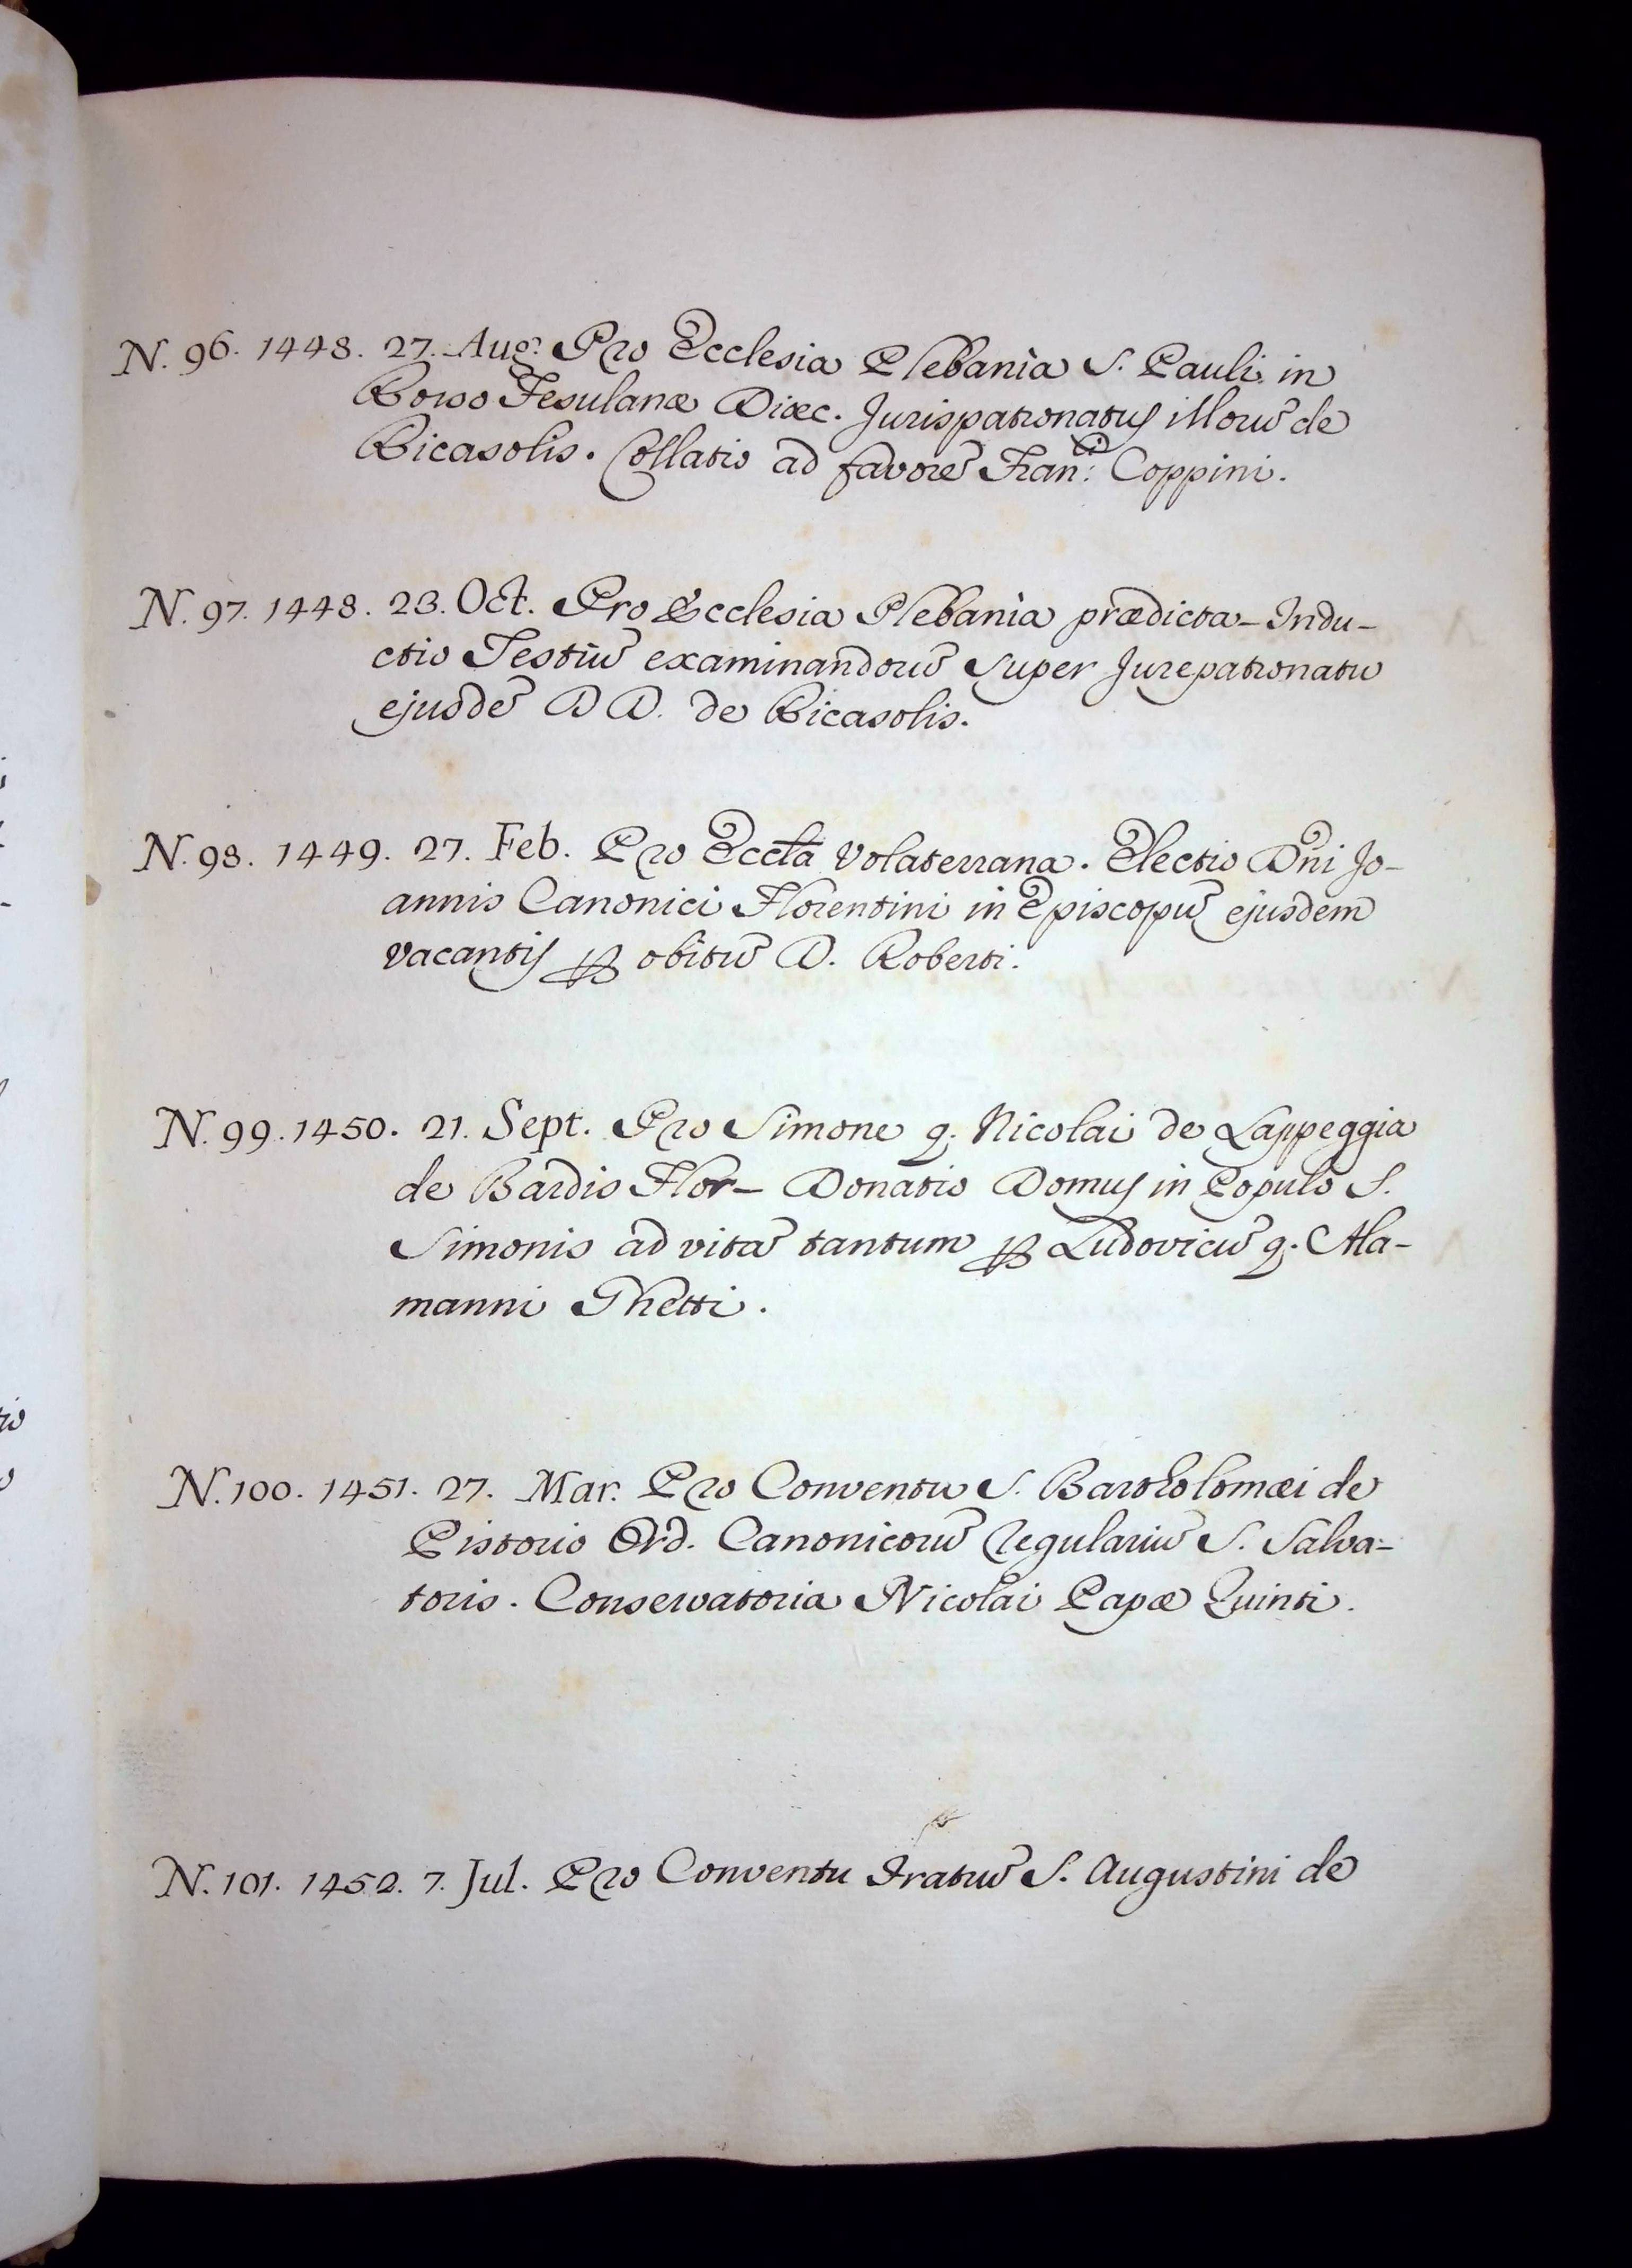 N. 96. 1448. 27. Aug. Pro Ecclesia Plebania S. Pauli in
Rosso Fesulanæ Diœc. Jurispatronatus illorũ de
Ricasolis. Collatio ad favorẽ Fran:ci Coppini.
N. 97. 1448. 23. Oct. Pro Ecclesia Plebania prædicta - Indu-
ctio Testiũ examinandorũ super Jurepatronatu
ejusdẽ DD. de Ricasolis.
N. 98. 1449. 27. Feb. Pro Eccla Volaterrana. Electio Dni Jo-
annis Canonici Florentini in Episcopũ ejusdem
vacantis ꝑ obitũ D. Roberti.
N. 99. 1450. 21. Sept. Pro Simone q. Nicolai de Lappeggia
de Bardis Flor - Donatio Domus in Populo S.
Simonis ad vitã tantum ꝑ Ludovicũ q. Ala-
manni Ghetti.
N. 100. 1451. 27. Mar. Pro Conventu S. Bartholomæi de
Pistorio Ord. Canonicorũ Regulariũ S. Salva-
toris. Conservatoria Nicolai Papæ Quinti.
N. 101. 1452. 7. Jul. Pro Conventu Fratrũ S. Augustini de